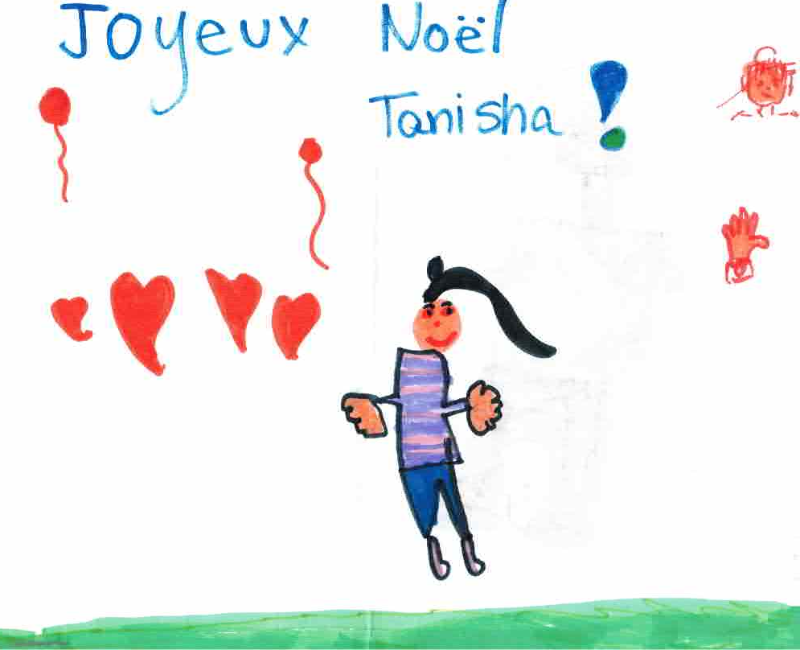 Joyeux Noël
Tanisha !